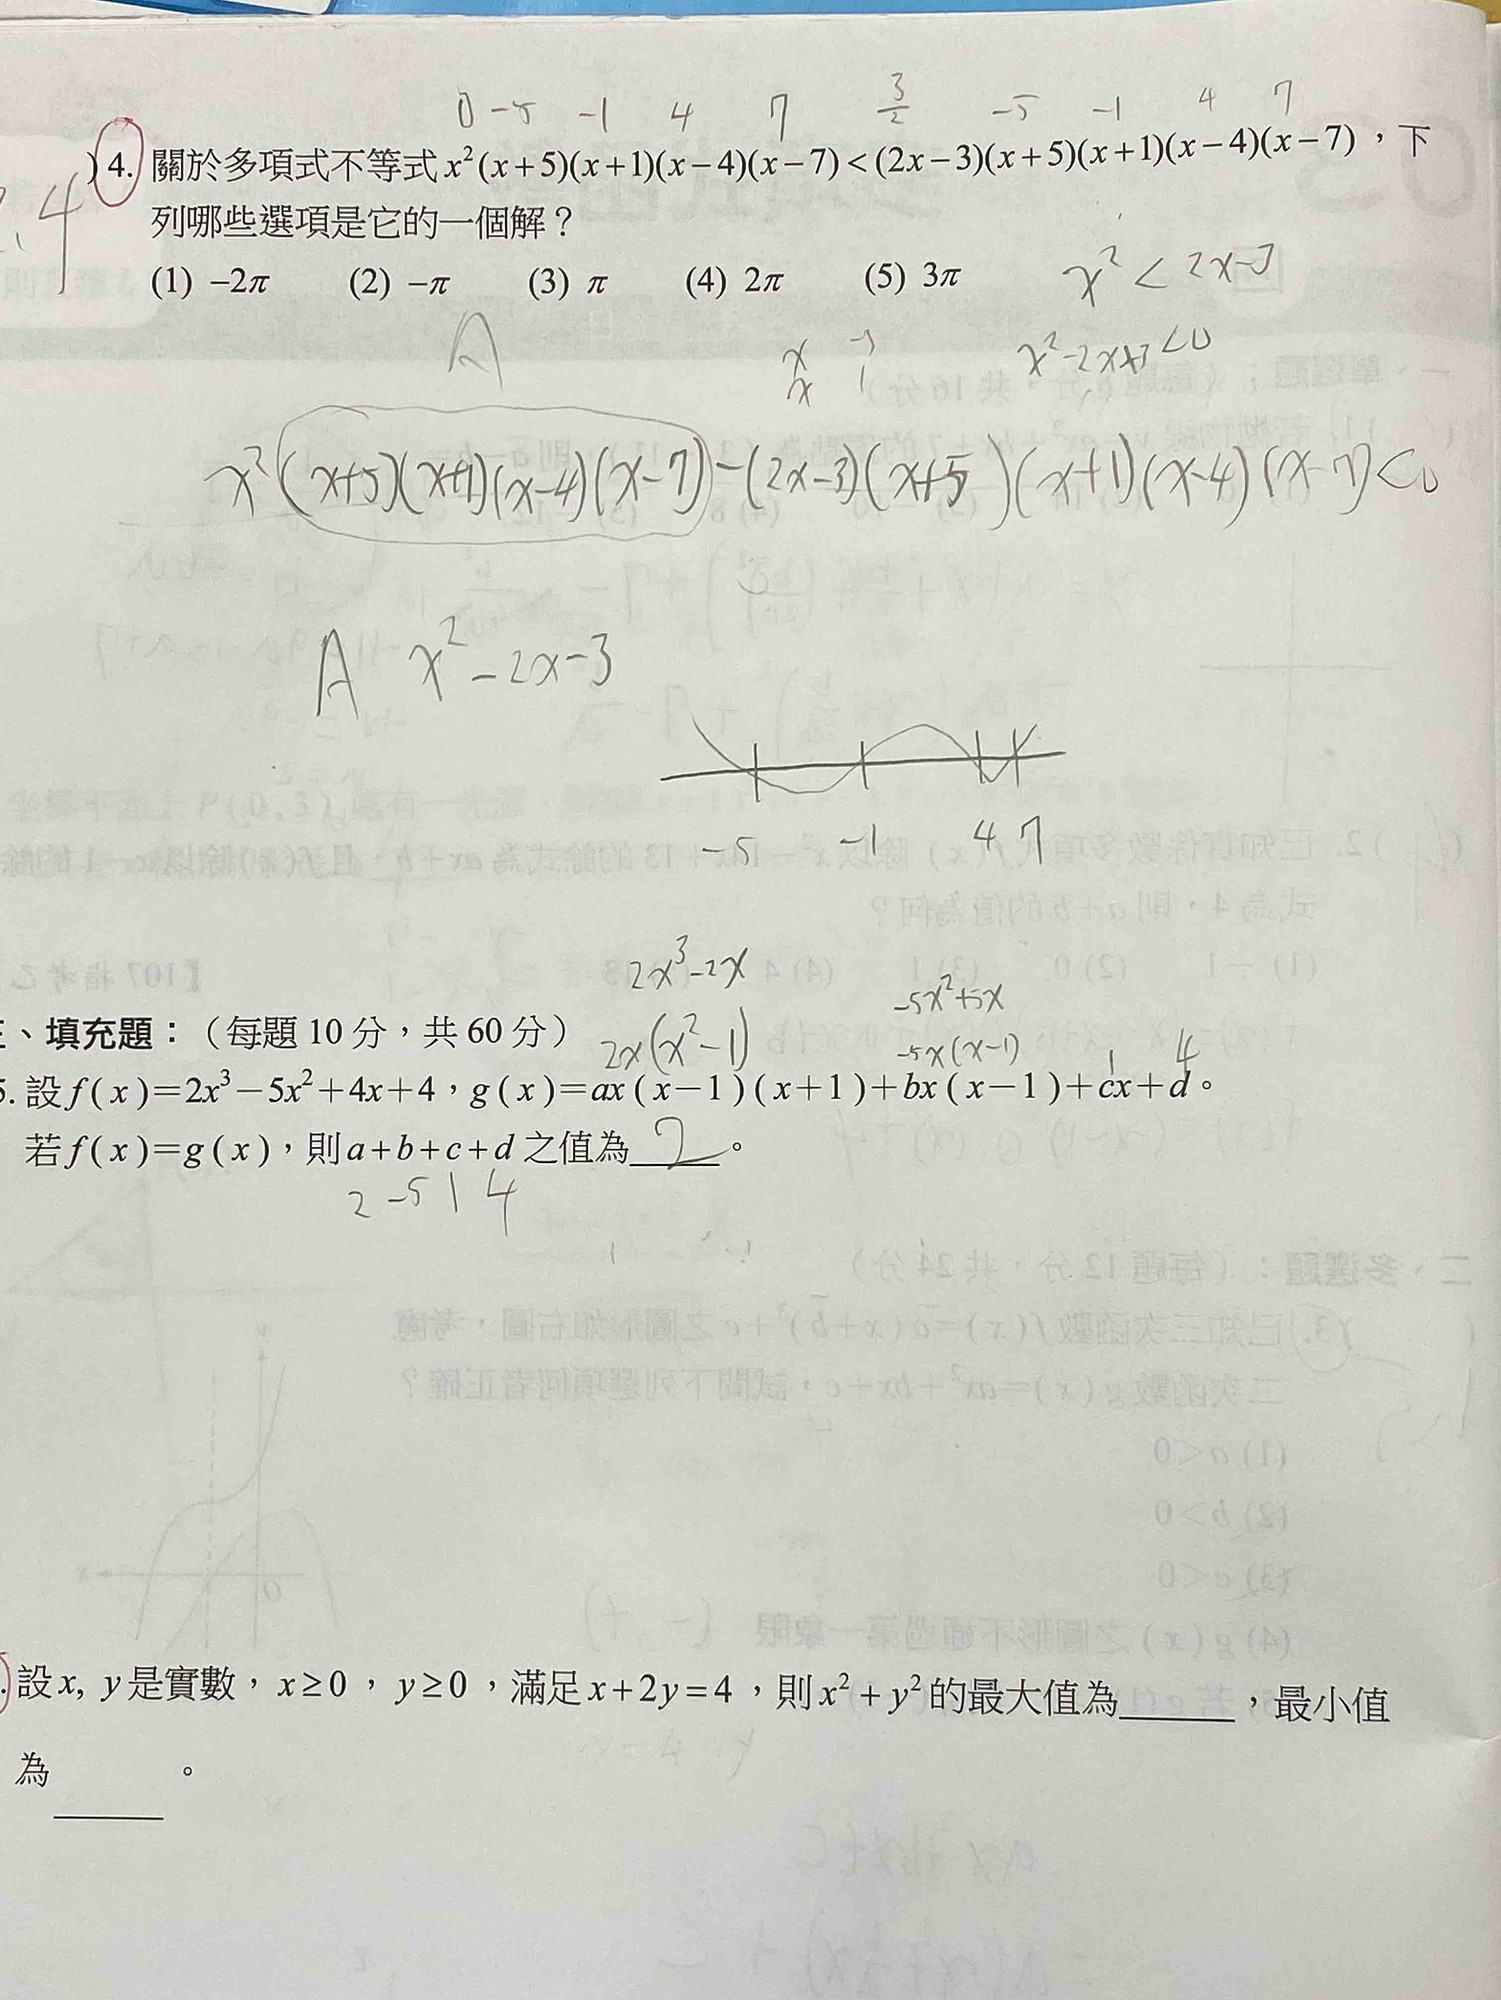 0 -5 -1 4 7 3/2 -5 -1 4 7
)4. 關於多項式不等式 x²(x+5)(x+1)(x−4)(x−7)<(2x−3)(x+5)(x+1)(x−4)(x−7),下
列哪些選項是它的一個解?
(1) −2π (2) −π (3) π (4) 2π (5) 3π
x² < 2x-3
x -3
x 1
x²-2x+3<0
A
x²(x+5)(x+1)(x-4)(x-7)-(2x-3)(x+5)(x+1)(x-4)(x-7)<0
A x²-2x-3
-5 -1 4 7
2x³-2x
-5x²+5x
三、填充題:(每題 10 分,共 60 分)
2x(x²-1) -5x(x-1) 1 4
5. 設 f(x)=2x³−5x²+4x+4,g(x)=ax(x−1)(x+1)+bx(x−1)+cx+d。
若 f(x)=g(x),則 a+b+c+d 之值為 2 。
2 -5 1 4
設 x, y 是實數,x≥0,y≥0,滿足 x+2y=4,則 x²+y² 的最大值為______,最小值
為______。